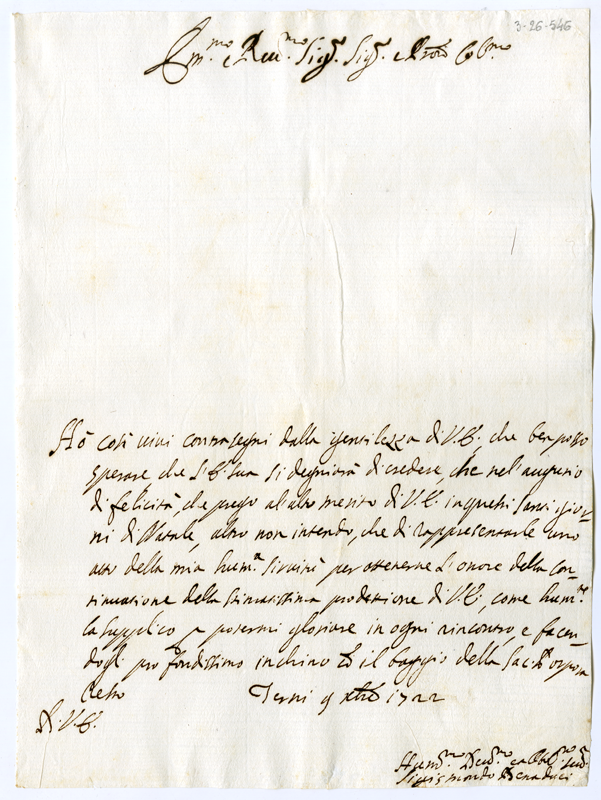 3-26-546
Em.mo e Reu.mo Sig.r Sig.r e Pron Col.mo
Hò così uiui contrasegni dalla gentilezza di V.E., che ben posso
sperare che l'E. sua si degniarà di credere, che nel augurio
di felicità, che prego al alto merito di V.E. in questi santi gior-
ni di Natale, altro non intendo, che di rappresentarle uno
atto della mia hum.a seruitù per ottenerne l'onore della con-
tinuatione della stimatissima protettione di V.E., come hum.te
la supplico p potermi gloriare in ogni rincontro, e facen-
dogli profondissimo inchino il baggio della Sac.
Terni 9 xbre 1722
Di V.E.
Hum.mo Deu.mo et Obb.mo Ser.
Sigismondo